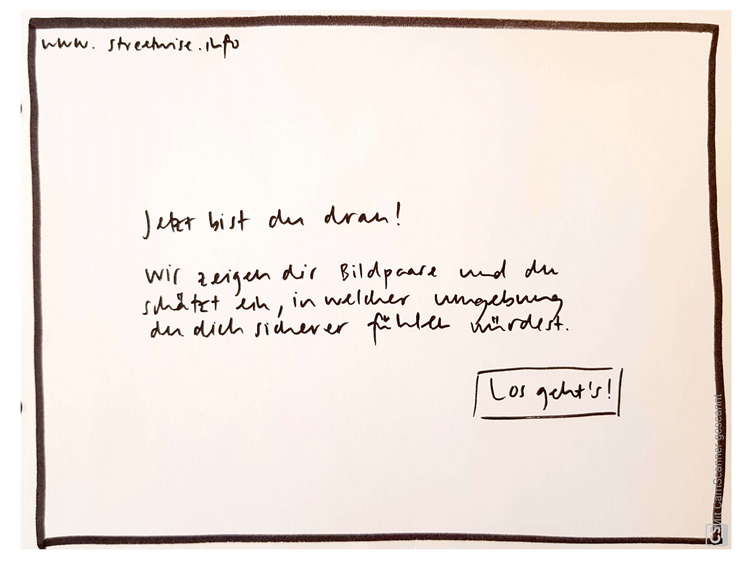 www.streetwise.info
Jetzt bist du dran!
Wir zeigen dir Bildpaare und du
schätzt ein, in welcher umgebung
du dich sicherer fühlen würdest.
Los geht's!
Mit CamScanner gescannt
CS